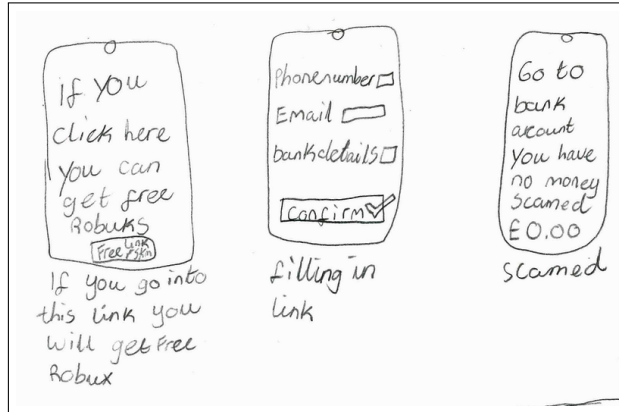 if you
click here
you can
get free
Robuks
Free Link
If you go into
this link you
will get Free
Robux
Phonenumber
Email
bankdetails
Confirm
filling in
link
Go to
bank
acount
you have
no money
scamed
£0.00
scamed